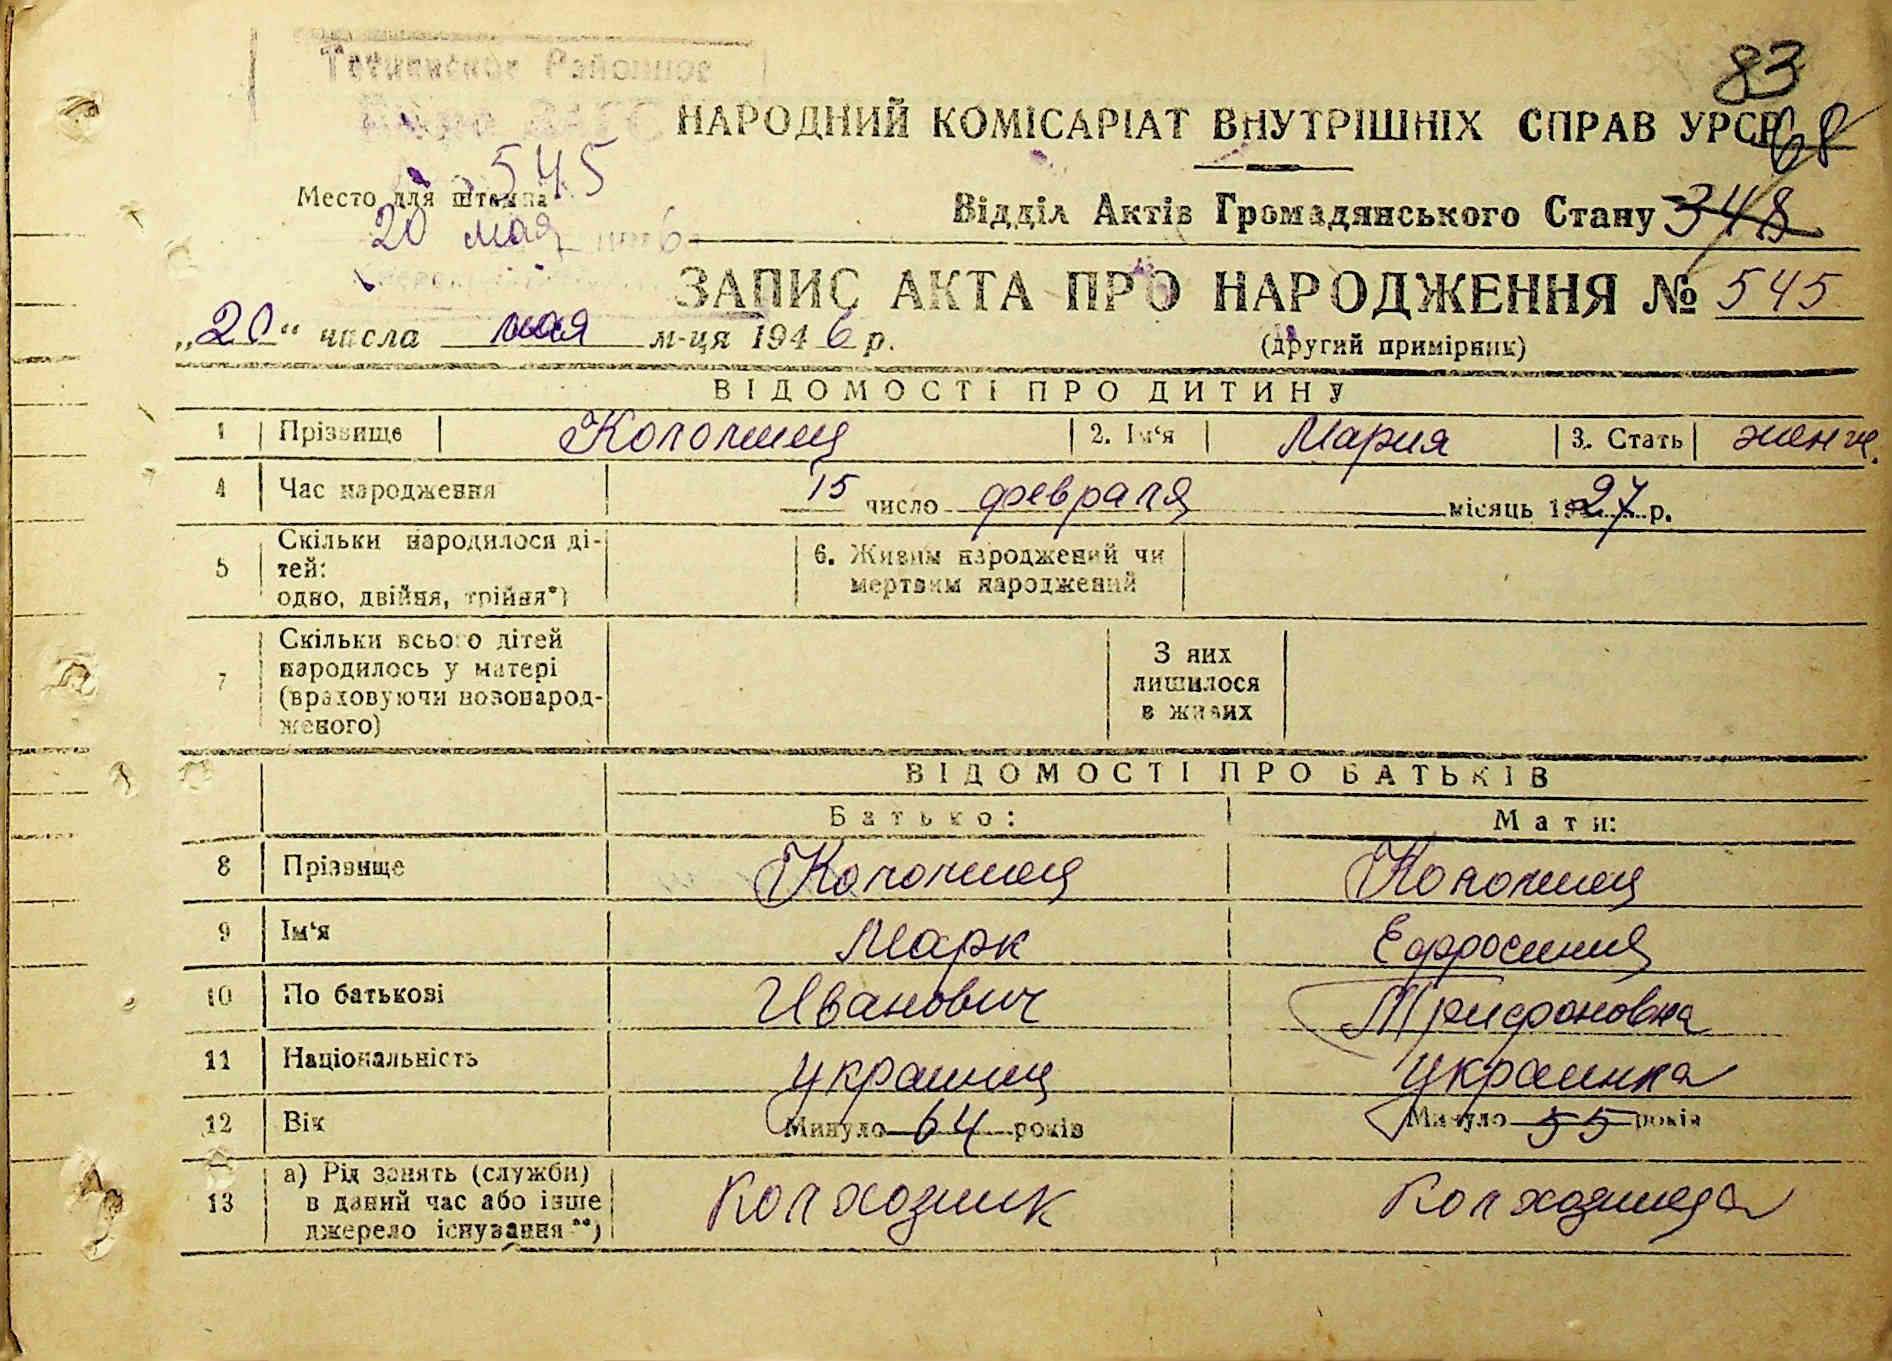 Районное
83
НАРОДНИЙ КОМІСАРІАТ ВНУТРІШНІХ СПРАВ УРСР
68
545
Место для штампа
Відділ Актів Громадянського Стану 348
20 мая 6
ЗАПИС АКТА ПРО НАРОДЖЕННЯ № 545
„20“ числа мая м-ця 1946 р.
(другий примірник)
ВІДОМОСТІ ПРО ДИТИНУ
1 Прізвище Коломиец 2. Ім‘я Мария 3. Стать женск.
4 Час народження 15 число февраля місяць 1927 р.
5 Скільки народилося ді-
тей:
одно, двійня, трійня*)
6. Живим народжений чи
мертвим народжений
7 Скільки всього дітей
народилось у матері
(враховуючи новонарод-
женого)
З них
лишилося
в живих
ВІДОМОСТІ ПРО БАТЬКІВ
Батько: Мати:
8 Прізвище Коломиец Коломиец
9 Ім‘я Марк Ефросиния
10 По батькові Иванович Трифоновна
11 Національність украинец украинка
12 Вік Минуло 64 років Минуло 55 років
13 а) Рід занять (служби)
в даний час або інше
джерело існування **)
Колхозник Колхозница